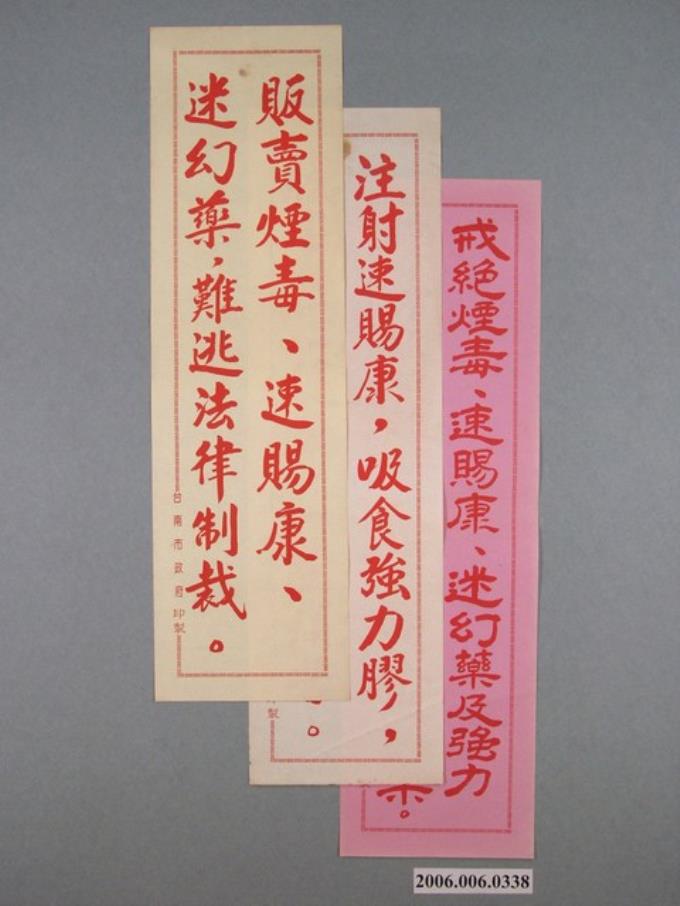 販賣煙毒、速賜康、
迷幻藥，難逃法律制裁。
台南市政府印製
注射速賜康，吸食強力膠，
。
印製
戒絕煙毒、速賜康、迷幻藥及強力
。
2006.006.0338